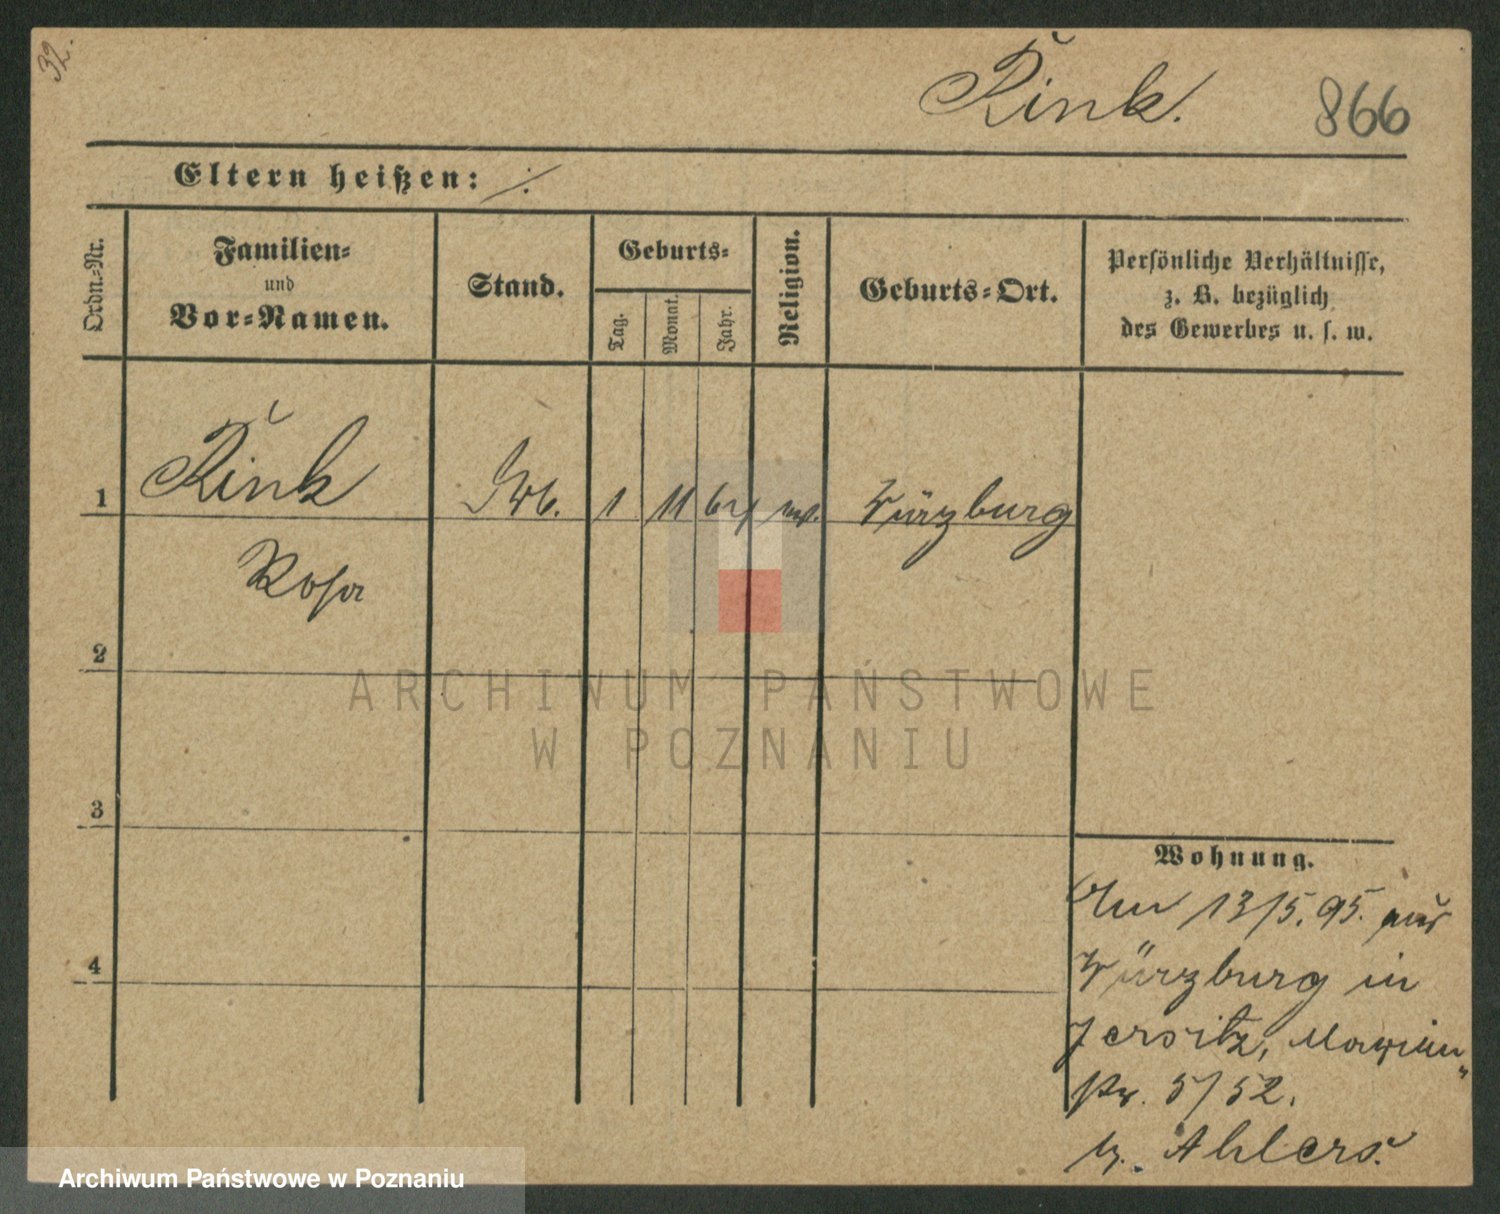 32.
Rink.
866
Eltern heißen: ∕.
Ordn.-Nr.
Familien-
und
Vor-Namen.
Stand.
Geburts-
Tag.
Monat.
Jahr.
Religion.
Geburts-Ort.
Persönliche Verhältnisse,
z. B. bezüglich
des Gewerbes u. s. w.
1
Rink
1 11
Würzburg
Rosa
2
3
4
ARCHIWUM PAŃSTWOWE
W POZNANIU
Wohnung.
Am 13/5.95. aus
Würzburg in
Jersitz,
str. 5/52.
b. Ahlers.
Archiwum Państwowe w Poznaniu